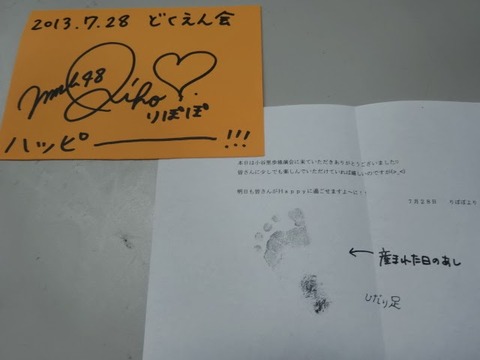 2013.7.28 どくえん会
NMB48 Riho
りぽぽ
ハッピー!!!
本日は小谷里歩独演会に来ていただきありがとうございました!!
皆さんに少しでも楽しんでいただけていれば嬉しいのですが(o_o)
明日も皆さんがHappyに過ごせますよ〜に!!
7月28日 りぽぽより
← 産まれた日のあし
ひだり足